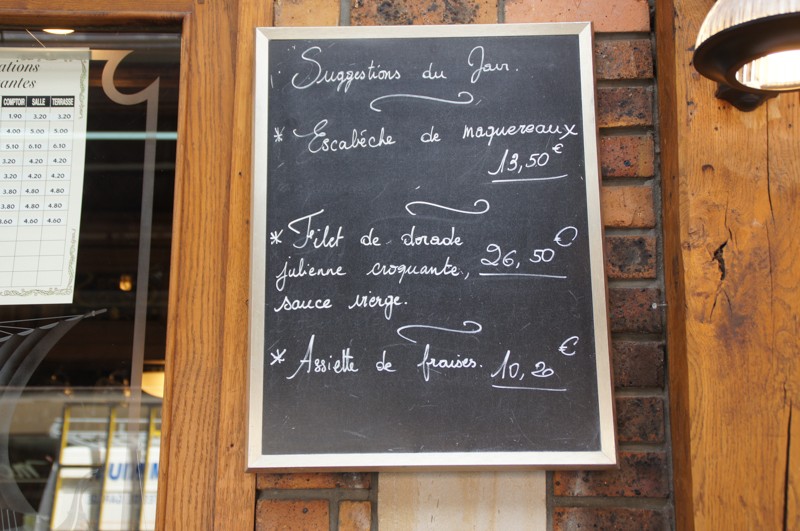 ations
antes
COMPTOIR SALLE TERRASSE
1.90 3.20 3.20
4.00 5.00 5.00
5.10 6.10 6.10
3.20 4.20 4.20
3.20 4.20 4.20
3.80 4.80 4.80
3.80 4.80 4.80
3.60 4.60 4.60
Suggestions du Jour.
* Escabèche de maquereaux
13,50€
* Filet de dorade
julienne croquante, 26,50€
sauce vierge.
* Assiette de fraises. 10,20€